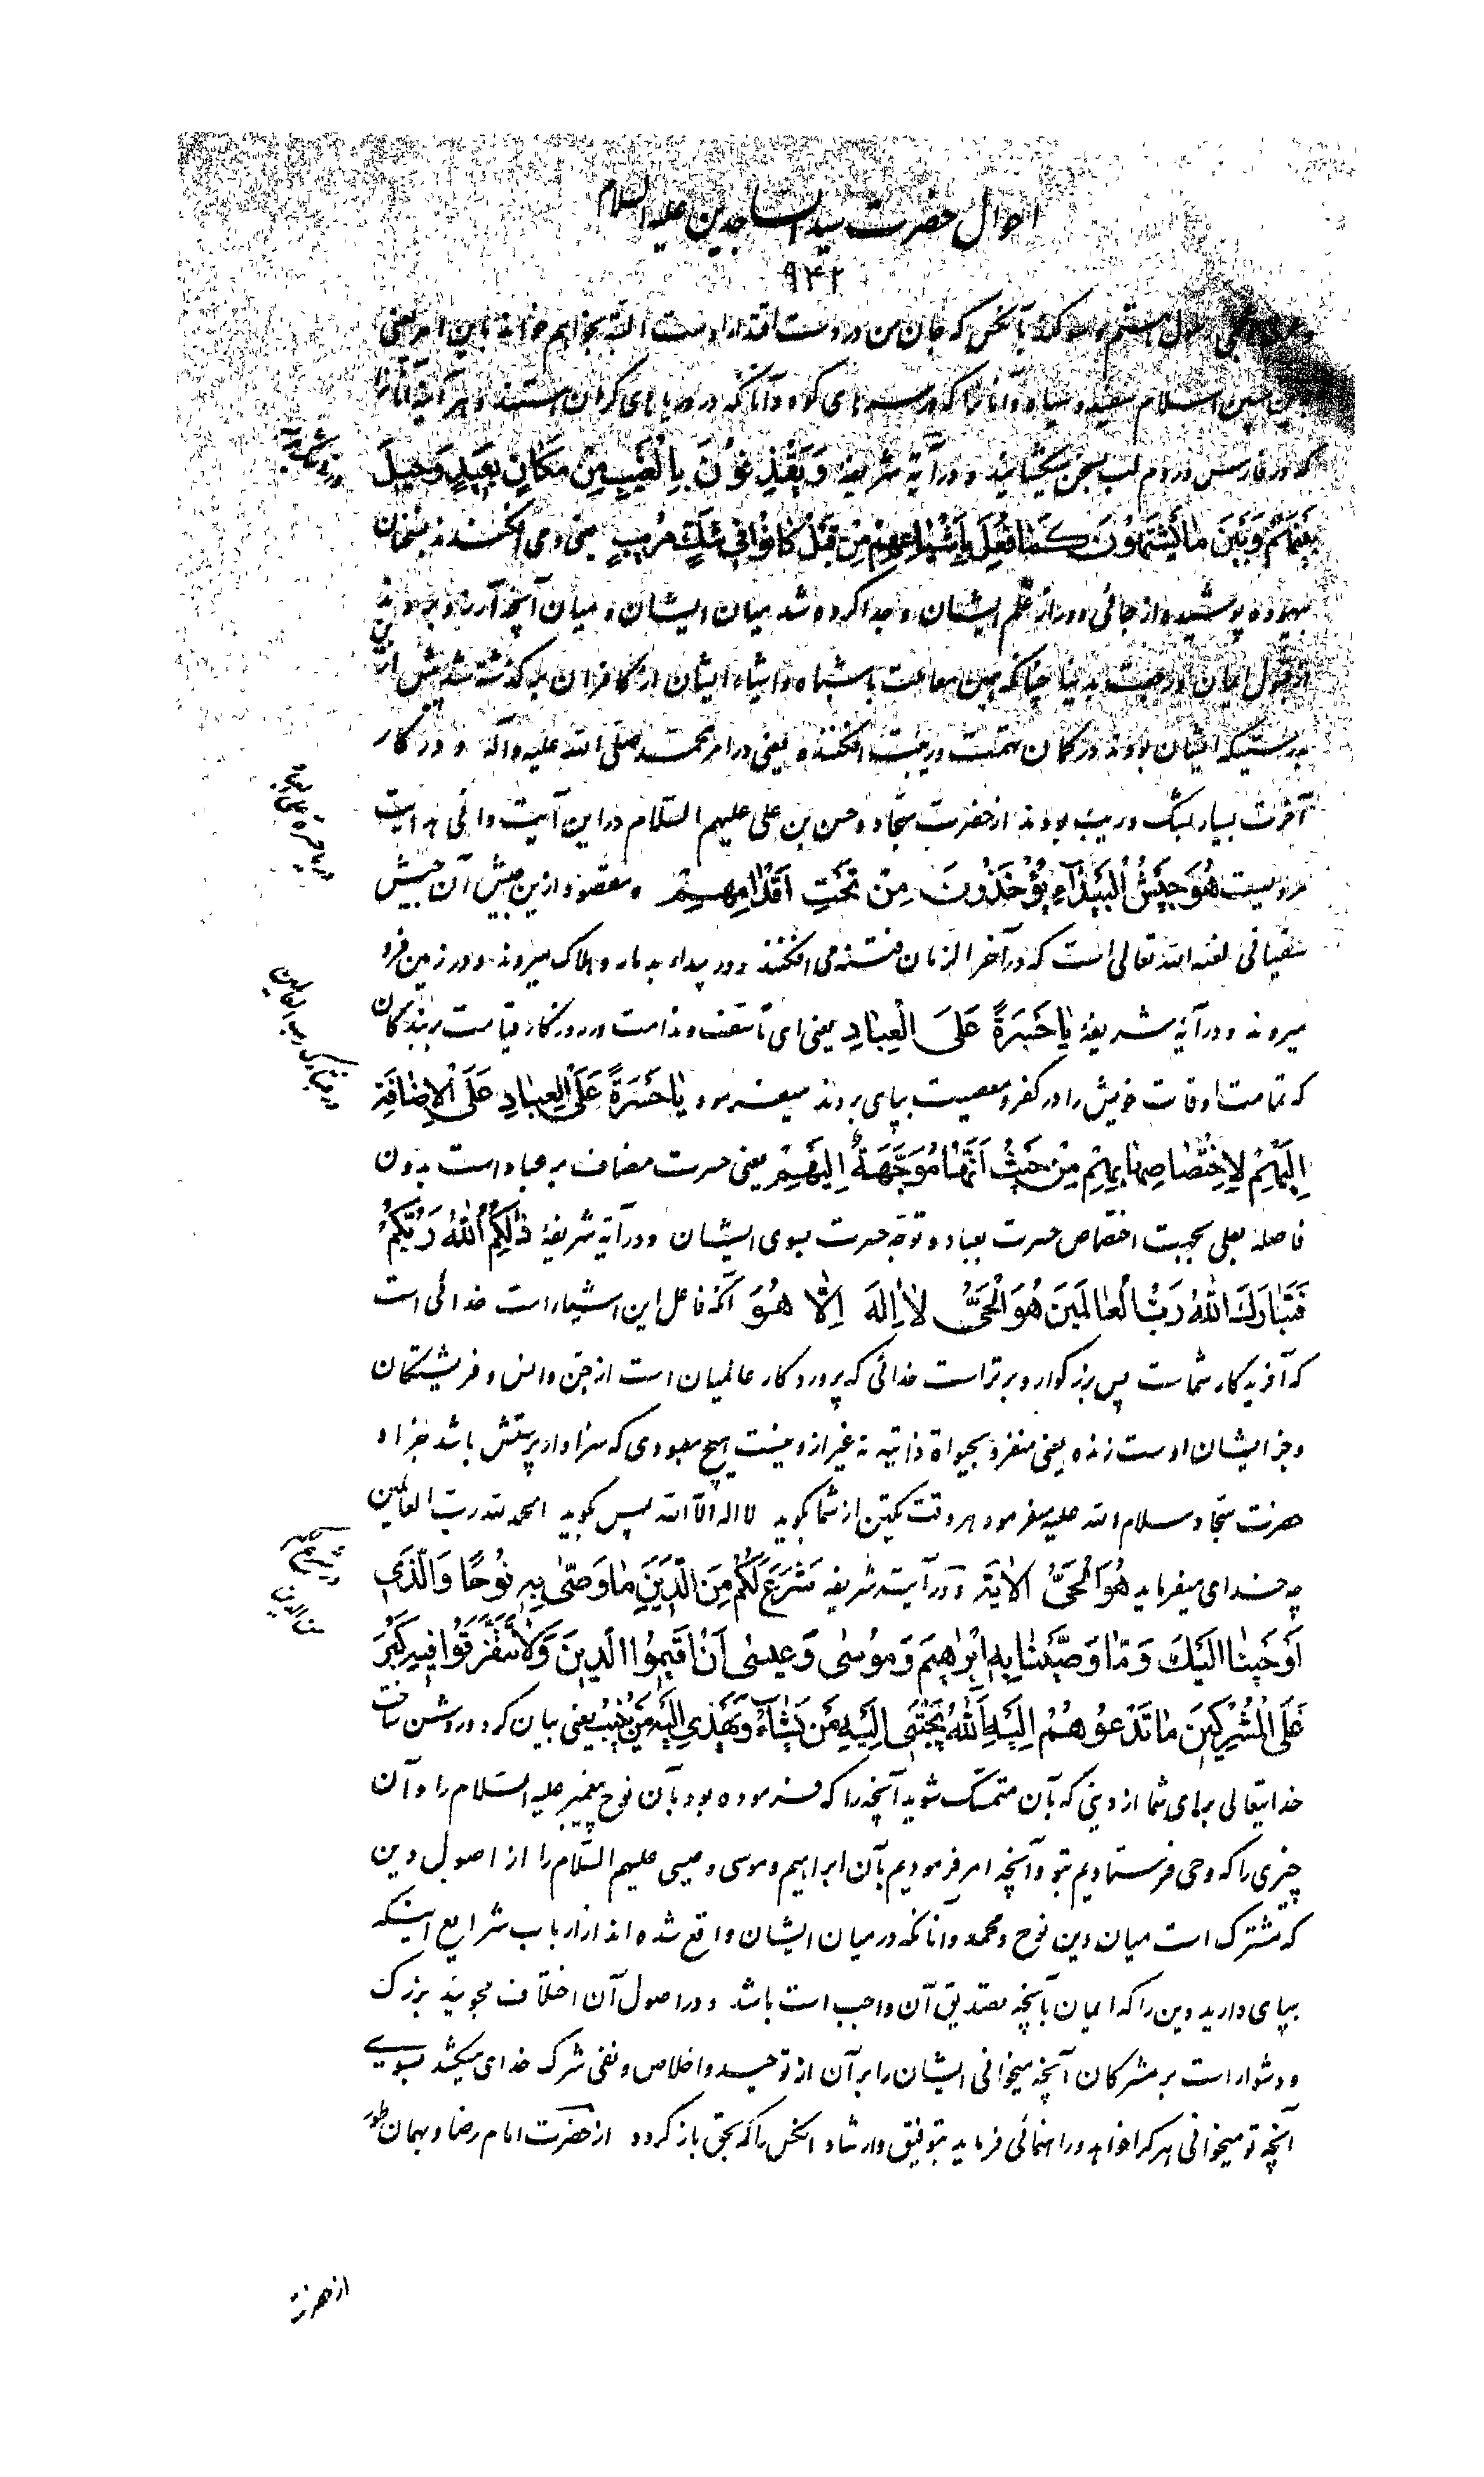 احوال حضرت سید الساجدین علیه السلام
۹۴۲
رسول هستم و سوگند بآنکس که جان من در دست اقتدار اوست البته بخوانم این امر یعنی
اسلام سفید و سیاه و آنانرا که بر سرهای کوه و آنانکه در دریاهای کران هستند و هر آینه آنانرا
که در فارس و روم لب بسخن میگشایند و در آیه شریفه وَیَقْذِفُونَ بِالْغَیْبِ مِنْ مَکانٍ بَعِیدٍ وَحِیلَ
بَیْنَهُمْ وَبَیْنَ ما یَشْتَهُونَ کَما فُعِلَ بِأَشْیاعِهِمْ مِنْ قَبْلُ کانُوا فِی شَکٍّ مُرِیبٍ یعنی و می افکنند سخنان
بیهوده پوشیده از جائی دور از علم ایشان و جدا کرده شد میان ایشان و میان آنچه آرزو برند
از قبول ایمان و رجعت بدنیا چنانکه همین معاملت باشباه و اشیاع ایشان از کافران بر گذشته شد پیش از
بدرستیکه ایشان بودند در گمان بتهمت و ریبت افکننده یعنی در امر محمد صلی الله علیه و آله و در کار
آخرت بسیار بشک و ریب بودند از حضرت سجاد و حسن بن علی علیهم السلام در این آیت وافی هدایت
مرویست هُوَ جَیْشُ الْبَیْداءِ یُؤْخَذُونَ مِنْ تَحْتِ أَقْدامِهِمْ و مقصود ازین جیش آن جیش
سفیانی لعنه الله تعالی است که در آخر الزمان فتنه می افکنند و در بیداء بدمار و هلاک میروند و در زمین فرو
میروند و در آیه شریفه یا حَسْرَةً عَلَی الْعِبادِ یعنی ای تأسف و ندامت در روزگار قیامت بر بندگان
که تمامت اوقات خویش را در کفر و معصیت بپای بردند میفرمود یا حَسْرَةً عَلَی الْعِبادِ عَلَی الْإِضافَةِ
إِلَیْهِمْ لِاخْتِصاصِها بِهِمْ مِنْ حَیْثُ أَنَّها مُوَجَّهَةٌ إِلَیْهِمْ یعنی حسرت مضاف بر عباد است بدون
فاصله بعلی بجهت اختصاص حسرت بعباد و توجه حسرت بسوی ایشان و در آیه شریفه ذلِکُمُ اللهُ رَبُّکُمْ
فَتَبارَکَ اللهُ رَبُّ الْعالَمِینَ هُوَ الْحَیُّ لا إِلهَ إِلّا هُوَ آنکه فاعل این اشیاء است خدائی است
که آفریدگار شماست پس بزرگوار و برتر است خدائی که پروردگار عالمیان است از جن و انس و فریشتگان
و جز ایشان اوست زنده یعنی منفرد بحیواة ذاتیه نه غیر از و نیست هیچ معبودی که سزاوار پرستش باشد جز او
حضرت سجاد سلام الله علیه میفرمود هر وقت یکتن از شما گوید لا اله الا الله پس گوید الحمد لله رب العالمین
چه خدای میفرماید هُوَ الْحَیُّ الآیَة و در آیت شریفه شَرَعَ لَکُمْ مِنَ الدِّینِ ما وَصّی بِهِ نُوحًا وَالَّذِی
أَوْحَیْنا إِلَیْکَ وَما وَصَّیْنا بِهِ إِبْرهِیمَ وَمُوسی وَعِیسی أَنْ أَقِیمُوا الدِّینَ وَلا تَتَفَرَّقُوا فِیهِ کَبُرَ
عَلَی الْمُشْرِکِینَ ما تَدْعُوهُمْ إِلَیْهِ اللهُ یَجْتَبِی إِلَیْهِ مَنْ یَشاءُ وَیَهْدِی إِلَیْهِ مَنْ یُنِیبُ یعنی بیان کرد و روشن ساخت
خدایتعالی برای شما از دینی که بآن متمسک شوید آنچه را که فرموده بود بآن نوح پیغمبر علیه السلام را و آن
چیزی را که وحی فرستادیم بتو و آنچه امر فرمودیم بآن ابراهیم و موسی و عیسی علیهم السلام را از اصول دین
که مشترک است میان دین نوح و محمد و آنانکه در میان ایشان واقع شده اند از ارباب شرایع اینکه
بپای دارید دین را که ایمان بآنچه تصدیق آن واجب است باشد و در اصول آن اختلاف مجوئید بزرگ
و دشوار است بر مشرکان آنچه میخوانی ایشان را بر آن از توحید و اخلاص و نفی شرک خدای میکشد بسوی
آنچه تو میخوانی هر که را خواهد و راهنمائی فرماید بتوفیق و ارشاد آنکس را که بحق باز گردد از حضرت امام رضا و بهمان طور
از حضرت